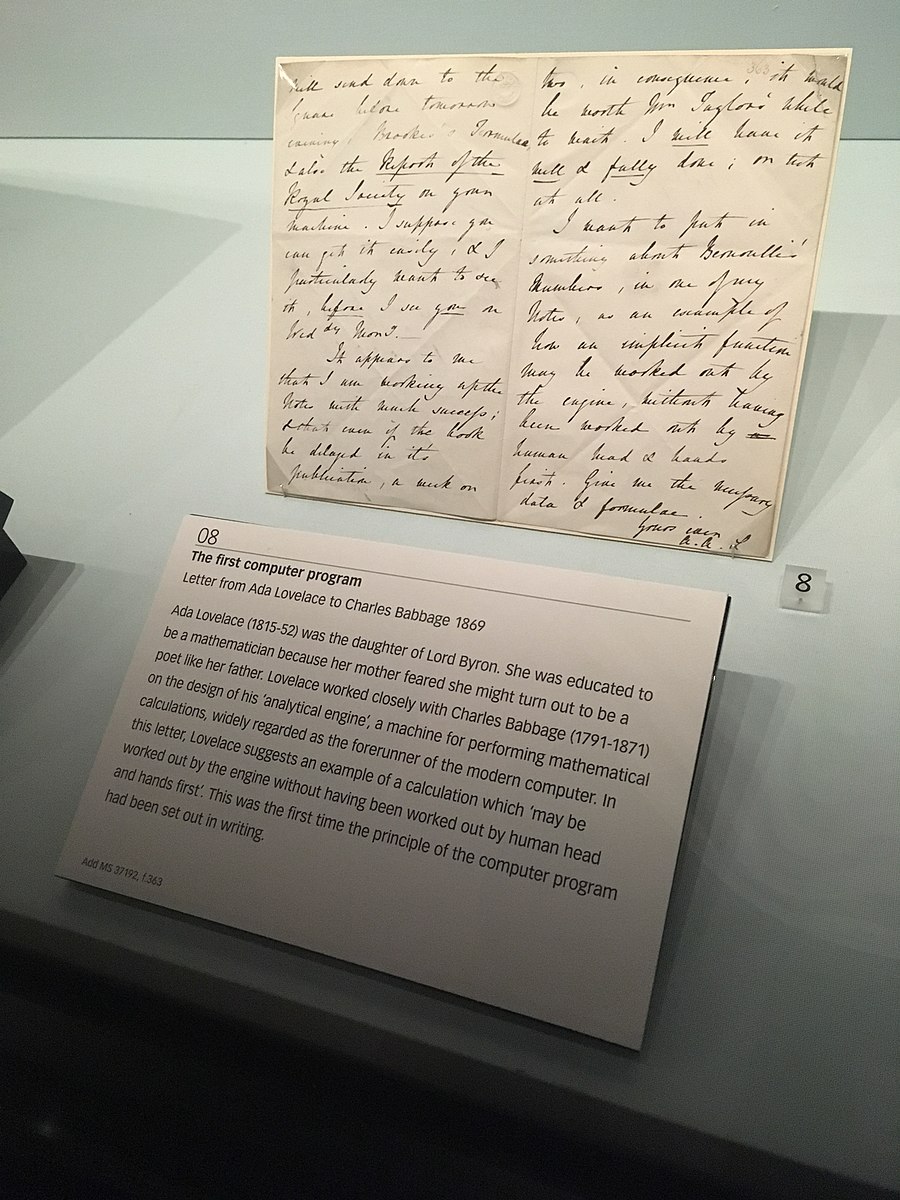 will send down to the
Square before tomorrow
evening, Brooke's Formulae,
& also the Report of the
Royal Society on your
machine. I suppose you
can get it easily, & I
particularly want to see
it, before I see you on
Wed dy Mong.—
It appears to me
that I am working up the
Notes with much success;
& that even if the book
be delayed in it's
publication, a week or
363
two, in consequence, it would
be worth Mr Taylor's while
to wait. I will have it
well & fully done; or not
at all.
I want to put in
something about Bernoulli's
Numbers, in one of my
Notes, as an example of
how an implicit function
may be worked out by
the engine, without having
been worked out by
human head & hands
first. Give me the necessary
data & formulae.
Yours ever
A. A. L
8
08
The first computer program
Letter from Ada Lovelace to Charles Babbage 1869
Ada Lovelace (1815-52) was the daughter of Lord Byron. She was educated to
be a mathematician because her mother feared she might turn out to be a
poet like her father. Lovelace worked closely with Charles Babbage (1791-1871)
on the design of his 'analytical engine', a machine for performing mathematical
calculations, widely regarded as the forerunner of the modern computer. In
this letter, Lovelace suggests an example of a calculation which 'may be
worked out by the engine without having been worked out by human head
and hands first'. This was the first time the principle of the computer program
had been set out in writing.
Add MS 37192, f.363